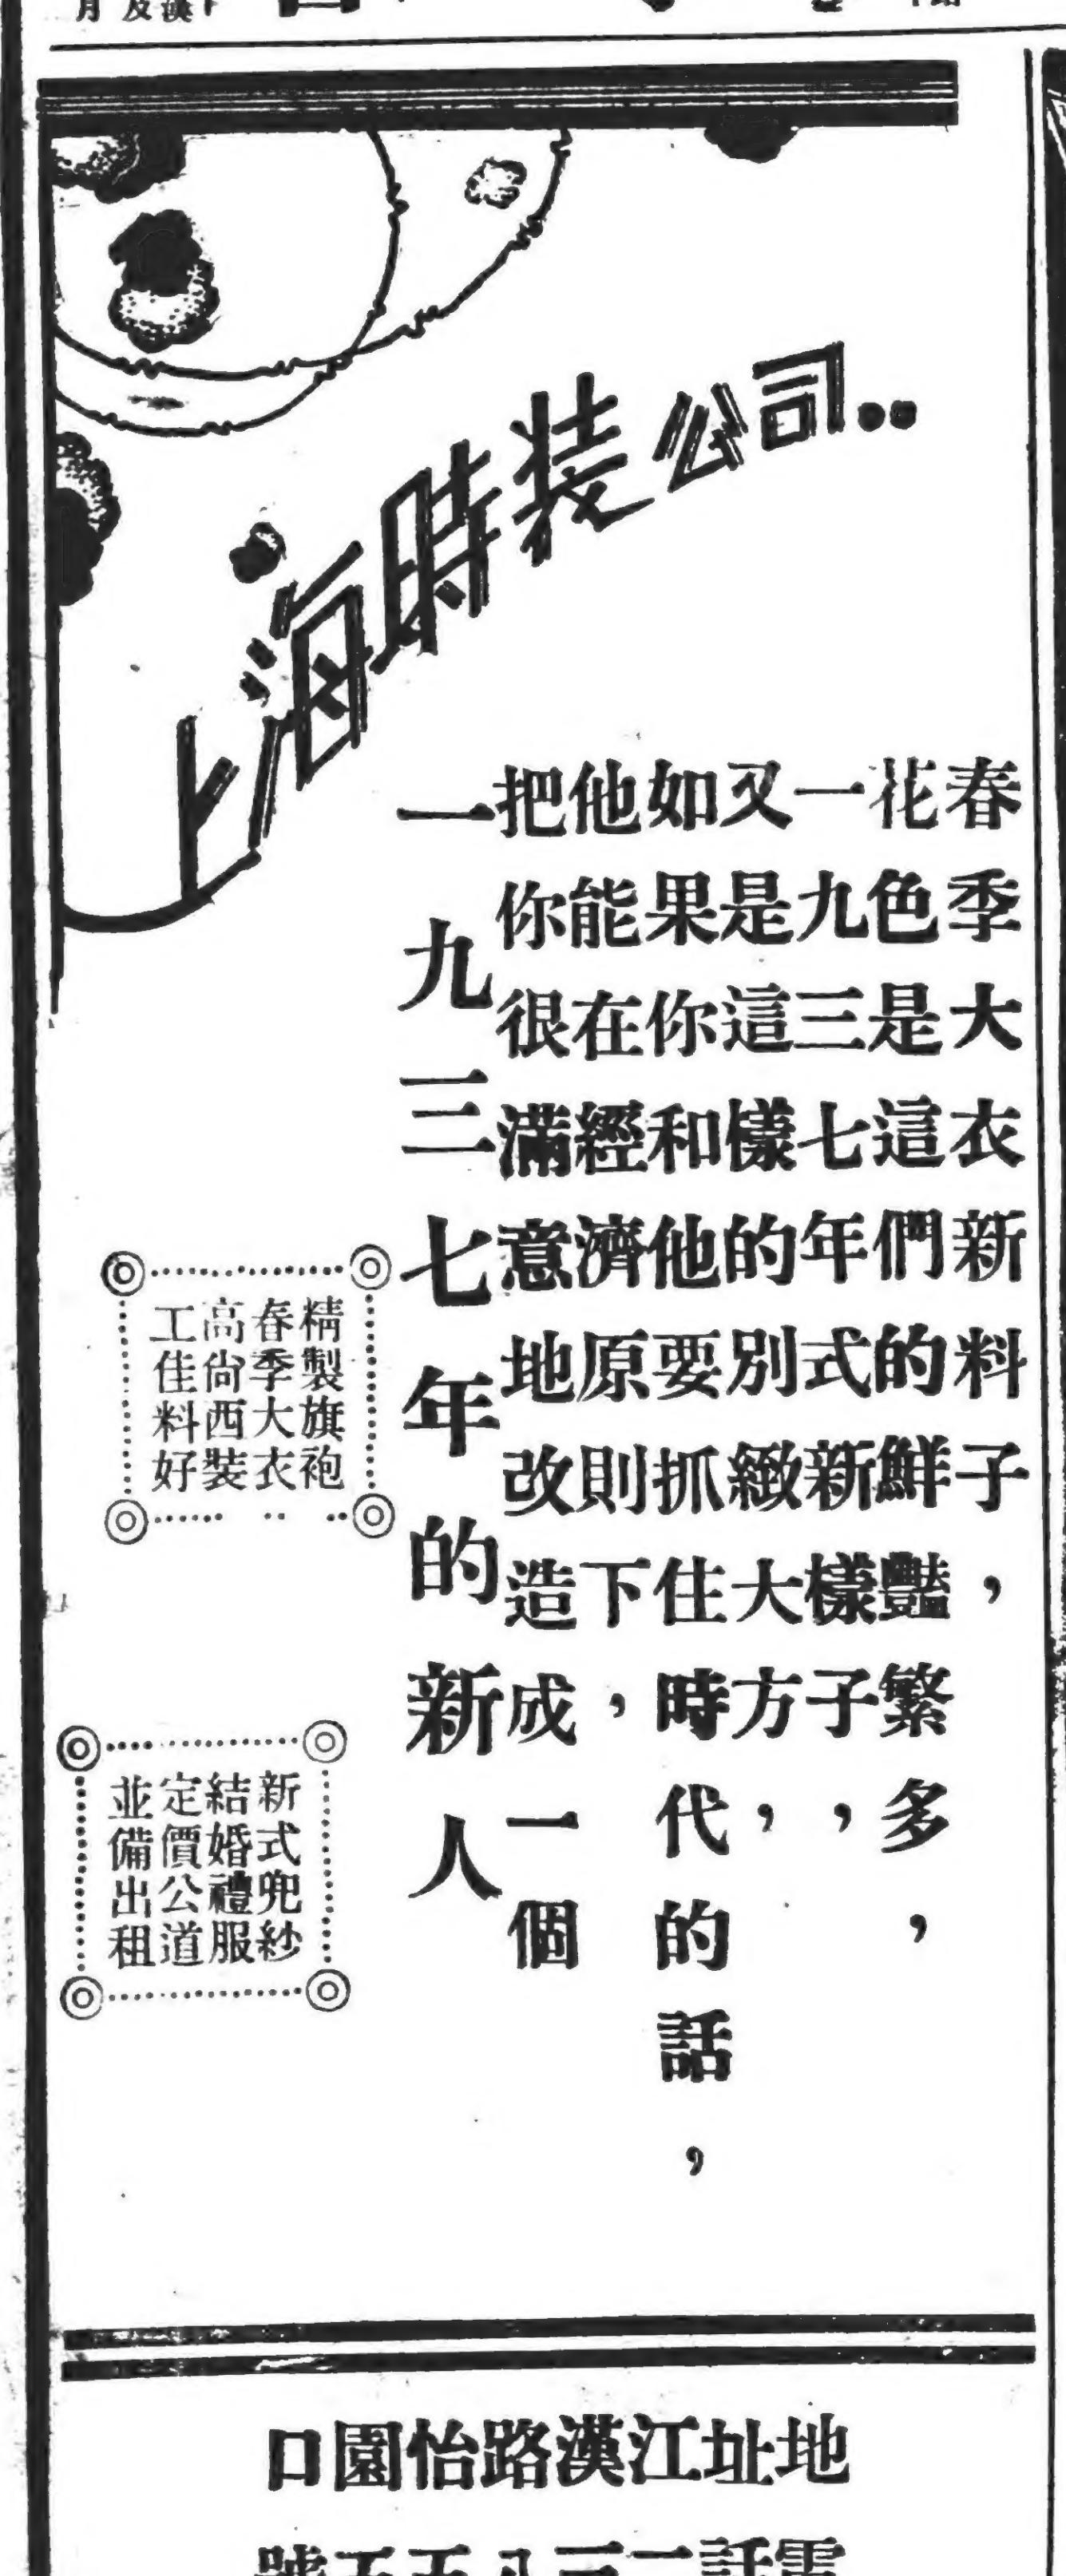 上海時裝公司..
春季大衣新料子，
花色是這們的鮮豔繁多，
一九三七年式新樣子，
又是這樣的別緻大方，
如果你和他要抓住時代的話，
他能在經濟原則下，
把你很滿意地改造成一個
一九三七年的新人
精製旗袍
春季大衣
高尙西裝
工佳料好
新式兜紗
結婚禮服
定價公道
並備出租
地址江漢路怡園口